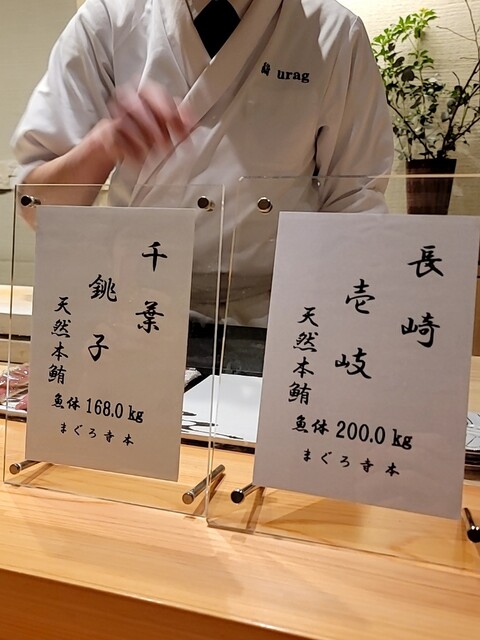 urag
千葉
銚子
天然本鮪
魚体 168.0 kg
まぐろ寺本
長崎
壱岐
天然本鮪
魚体 200.0 kg
まぐろ寺本